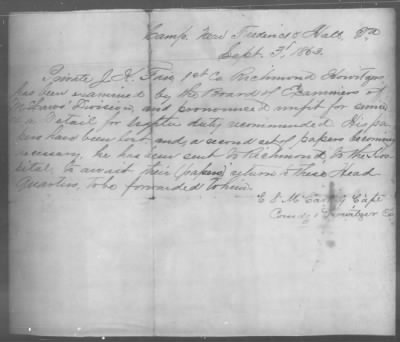 Camp near Frederick's Hall, Va
Sept. 3d, 1863.
Private J. H. 1st Co Richmond Howitzers
has been examined by the Board of Examiners of
McLaws' Division, and pronounced unfit for service
& a Detail for duty recommended. His pa-
pers have been lost and, a second set of papers becoming
necessary, he has been sent to Richmond, to the Hos-
pital, to await their (papers') return to these Head
Quarters, to be forwarded to him.
E. S. McCarthy Capt
Comdg 1 Howitzer Co